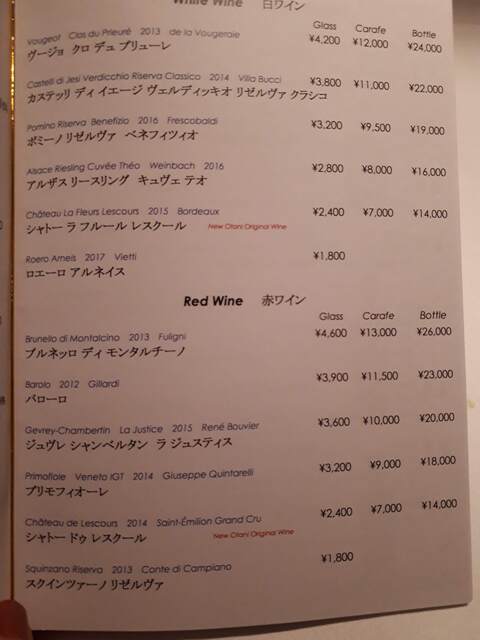 White Wine 白ワイン
Glass Carafe Bottle
Vougeot Clos du Prieuré 2013 de la Vougeraie ¥4,200 ¥12,000 ¥24,000
ヴージョ クロ デュ プリューレ
Castelli di Jesi Verdicchio Riserva Classico 2014 Villa Bucci ¥3,800 ¥11,000 ¥22,000
カステッリ ディ イエージ ヴェルディッキオ リゼルヴァ クラシコ
Pomino Riserva Benefizio 2016 Frescobaldi ¥3,200 ¥9,500 ¥19,000
ポミーノ リゼルヴァ ベネフィツィオ
Alsace Riesling Cuvée Théo Weinbach 2016 ¥2,800 ¥8,000 ¥16,000
アルザス リースリング キュヴェ テオ
Château La Fleurs Lescours 2015 Bordeaux ¥2,400 ¥7,000 ¥14,000
シャトー ラ フルール レスクール New Otani Original Wine
Roero Arneis 2017 Vietti ¥1,800
ロエーロ アルネイス
Red Wine 赤ワイン
Glass Carafe Bottle
Brunello di Montalcino 2013 Fuligni ¥4,600 ¥13,000 ¥26,000
ブルネッロ ディ モンタルチーノ
Barolo 2012 Gillardi ¥3,900 ¥11,500 ¥23,000
バローロ
Gevrey-Chambertin La Justice 2015 René Bouvier ¥3,600 ¥10,000 ¥20,000
ジュヴレ シャンベルタン ラ ジュスティス
Primofiole Veneto IGT 2014 Giuseppe Quintarelli ¥3,200 ¥9,000 ¥18,000
プリモフィオーレ
Château de Lescours 2014 Saint-Émilion Grand Cru ¥2,400 ¥7,000 ¥14,000
シャトー ドゥ レスクール New Otani Original Wine
Squinzano Riserva 2013 Conte di Campiano ¥1,800
スクインツァーノ リゼルヴァ